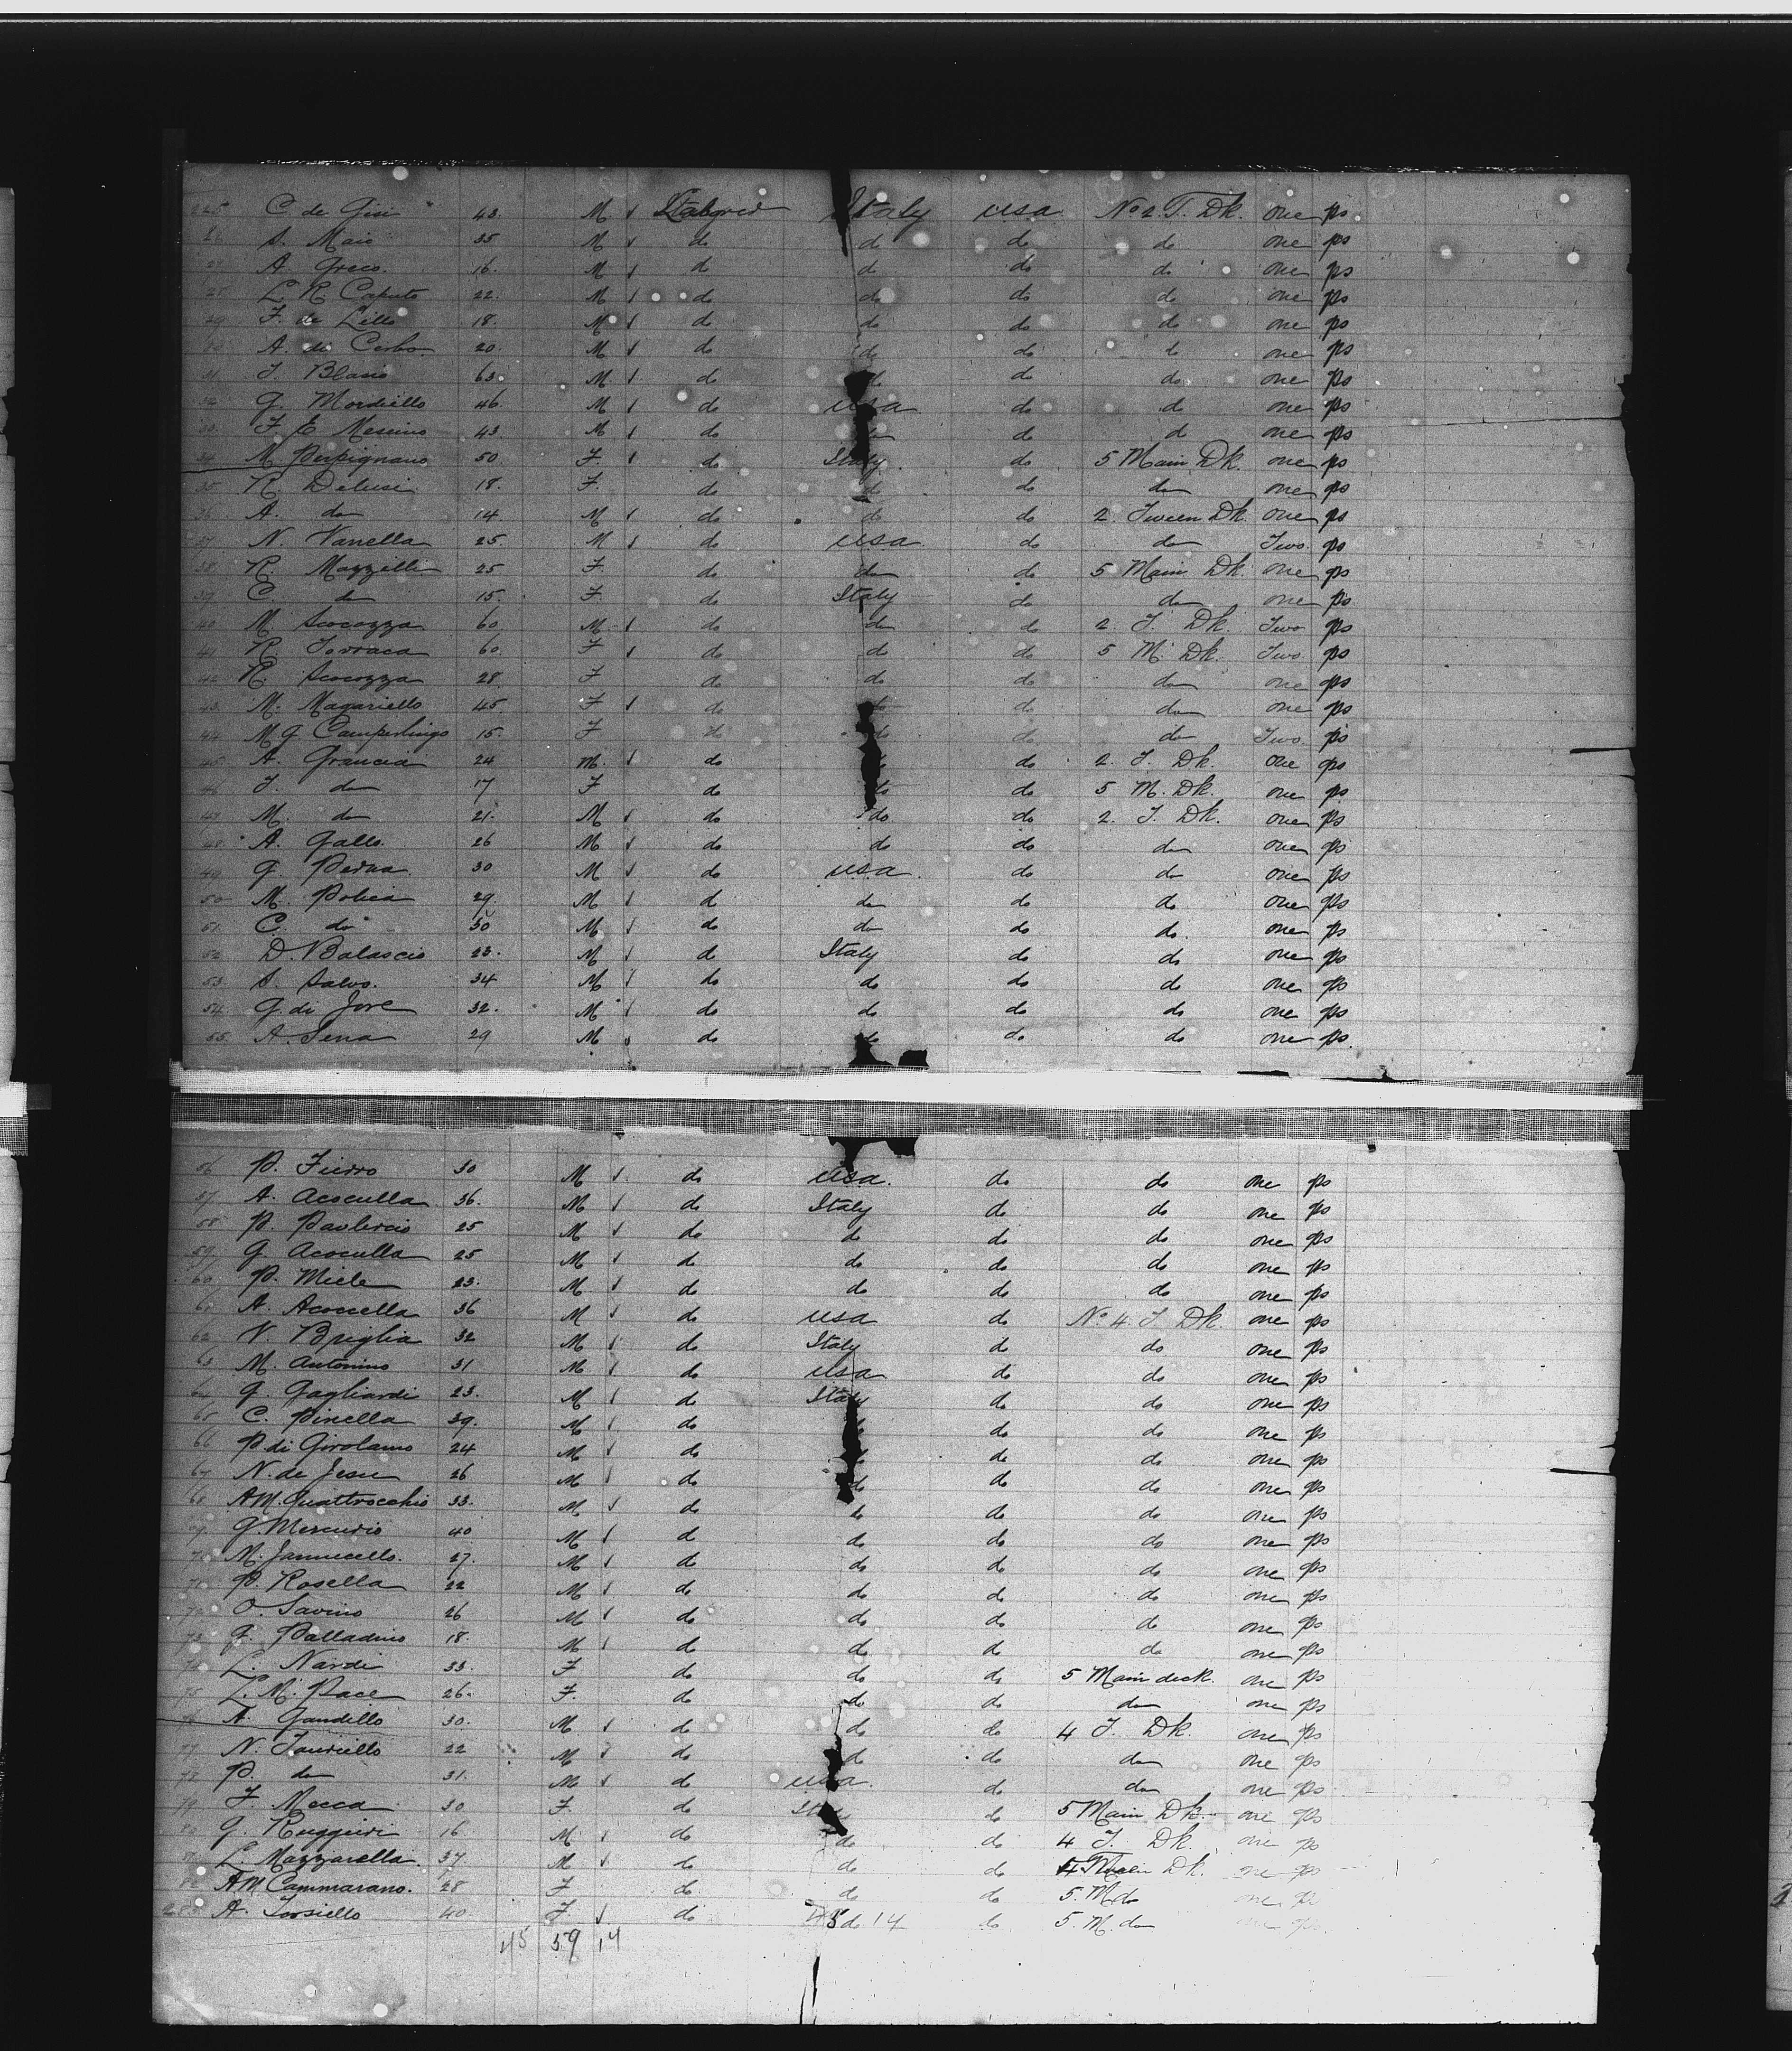 225 C. de Gisi 43. M Labored Italy usa No 2. T. Dk. one ps
26 S. Maio 35 M do do do do one ps
27 A Greco. 16. M do do do do one ps
28 L. R. Caputo 22. M do do do do one ps
29 F. de Lillo 18. M do do do do one ps
A. di Carbo. 20. M do do do do one ps
31 Blasio 63. M do do do do one ps
32 G. Mordiello 46. M do usa do do one ps
33. F. E Messino 43. M do do do one ps
34 M. Perpignano 50 F do Italy do 5 Main Dk. one ps
35 R. Delusi 18. F. do do do do one ps
36 A. do 14 M do do do 2. Tween Dk. one ps
37 N. Vanella 25. M do usa do do Two. ps
38 R. Mazzilli 25 F. do do do 5 Main Dk. one ps
39 C. do 15. F. do Italy do do one ps
40 M. Scocozza. 60 M do do do 2 T. Dk. Two ps
41 R. Torraca 60. F do do do 5 M. Dk. Two. ps
42 Scocozza 28 F do do do do one ps
43. M. Magariello 45 F do do do do one ps
44 M. G. Camperlingo 15. F do do do do Two. ps
45 A. Grancia 24 M. do do 2. T. Dk. one ps
46 do 17 F do do do 5 M. Dk. one ps
47 M. do 21. M do do do 2. T. Dk. one ps
48 A. Gallo. 26 M do do do do one ps
49 G. Perna. 30 M do usa. do do one ps
50 M. Polica 29 M do do do do one ps
51. C. do 30 M do do do do. one ps
52 D. Balascio 23. M do Italy do do one ps
53. S. Salvo. 34 M do do do do one ps
54 G. di Jore 32. M do do do do one ps
55. A. Sena 29 M do do do do one ps.
56 P. Fierro 30 M do usa. do do one ps
57. A. Acocella 36. M do Italy do do one ps
58 P. 25 M do do do do one ps
59 G. Acocella 25 M do do do do one ps
60 P. Miele 23. M do do do do one ps
A. Acocella 36 M do usa do No 4. T. Dk. one ps
62 V. Briglia 32 M do Italy do do one ps
63 M. Antonino 31 M do usa do do one ps
64 G. Gagliardi 23. M do Italy do do one ps
65 C. Pinella 39. M do do do one ps
66 P. di Girolamo 24 M do do do one ps
67 N. de Jesu 26 M do do do do one ps
68 A M. Quattrocchio 33. M do do do do one ps
69. G. Mercurio 40 M do do do do one ps
M. Jannicello. 27. M do do do do one ps
71 P. Rosella 22 M do do do do one ps
72 O. Savino 26 M do do do do one ps
73 G. Palladino 18. M do do do do one ps
L. Nardi 33. F do do do 5 Main deck. one ps
75 L. M. Pace 26. F. do do do do one ps
76 A. Gaudillo 30. M do do do 4 T. Dk. one ps
77 N. Tauriello 22 M do do do do one ps
78 P. do 31. M do usa. do do one ps
79 F. Mecca 30 F. do Italy do 5 Main Dk. one ps
80 G. Ruggieri 16 M do do do 4 T. Dk. one ps
81 L. Mazzarella. 37. M do do do 4 Dk. one ps
82 A M Cammarano. 28 F do do do 5. M do one ps
A. Torsiello 40 F do do 14 do 5. M. do one ps
45 59 14